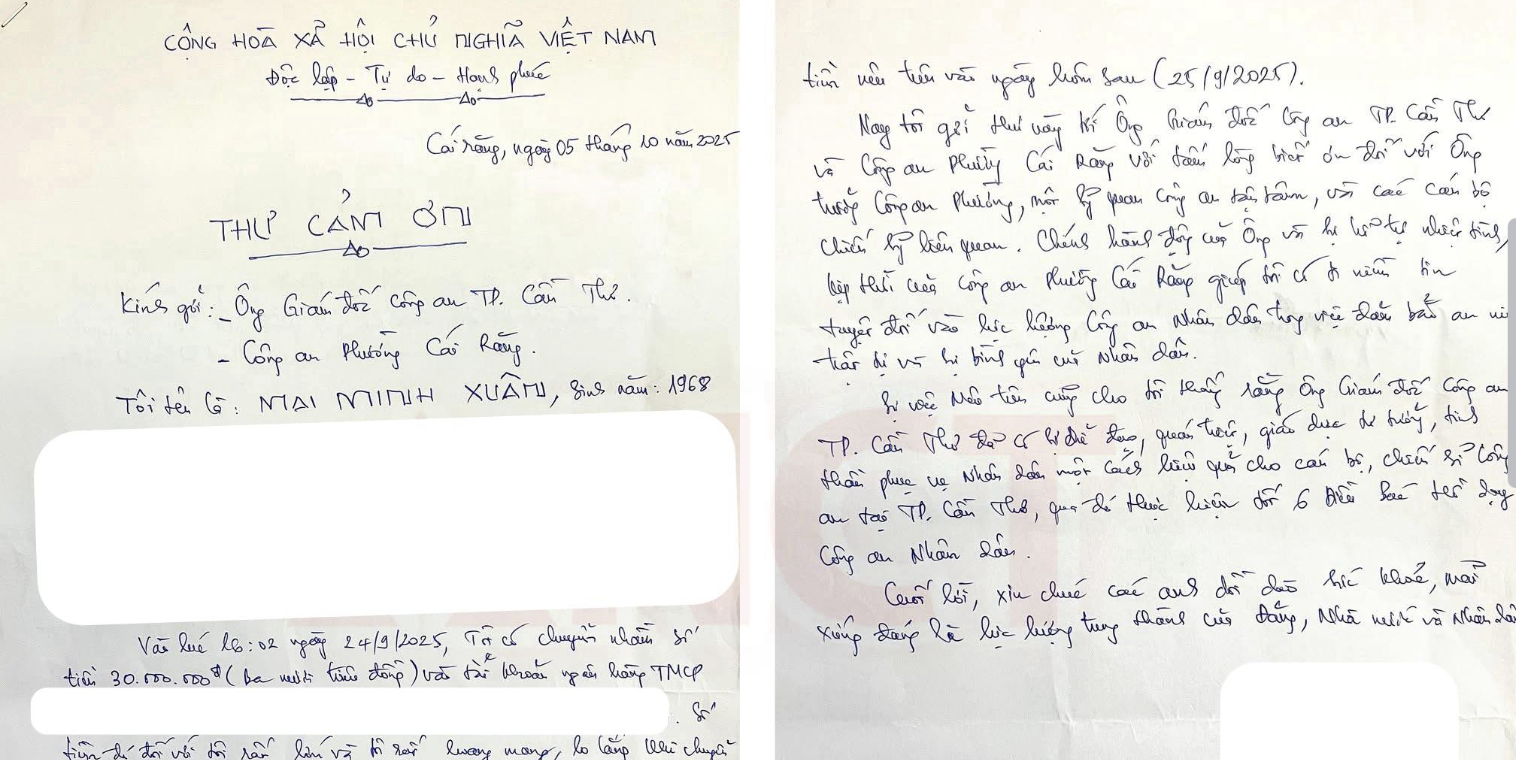 CỘNG HOÀ XẢ HỘI CHỦ NGHĨA VIỆT NAM
Độc lập - Tự do - Hạnh phúc
Cái răng, ngày 05 tháng 10 năm 2025
THƯ CẢM ƠN
Kính gởi: - Ông Giám đốc Công an TP. Cần Thơ.
- Công an Phường Cái Răng.
Tôi tên là: MAI MINH XUÂN, sinh năm: 1968
Vào lúc 16:02 ngày 24/9/2025, Tôi có chuyển nhầm số
tiền 30.000.000đ (ba mươi triệu đồng) vào tài khoản ngân hàng TMCP
. Số
tiền đó đối với tôi rất lớn và tôi rất hoang mang, lo lắng khi chuyển
tiền nêu trên vào ngày hôm sau (25/9/2025).
Nay tôi gởi thư này kí Ông Giám đốc Công an TP. Cần Thơ
và Công an Phường Cái Răng với tấm lòng biết ơn đối với Ông
trưởng Công an Phường, một sỹ quan công an tận tâm, với các cán bộ
chiến sỹ liên quan. Chính hành động của Ông và sự hỗ trợ nhiệt tình,
kịp thời của công an Phường Cái Răng giúp tôi có niềm tin
tuyệt đối vào lực lượng Công an Nhân dân trong việc đảm bảo an ni
trật tự và sự bình yên của Nhân dân.
Sự việc Nêu trên cũng cho tôi thấy rằng Ông Giám đốc Công an
TP. Cần Thơ đã có sự chỉ đạo, quán triệt, giáo dục tư tưởng, tinh
thần phục vụ Nhân dân một cách hiệu quả cho cán bộ, chiến sĩ Công
an tại TP. Cần Thơ, qua đó thực hiện tốt 6 Điều Bác Hồ dạy
Công an Nhân dân.
Cuối lời, xin chúc các anh dồi dào sức khoẻ, mãi
xứng đáng là lực lượng trung thành của Đảng, Nhà nước và Nhân dân